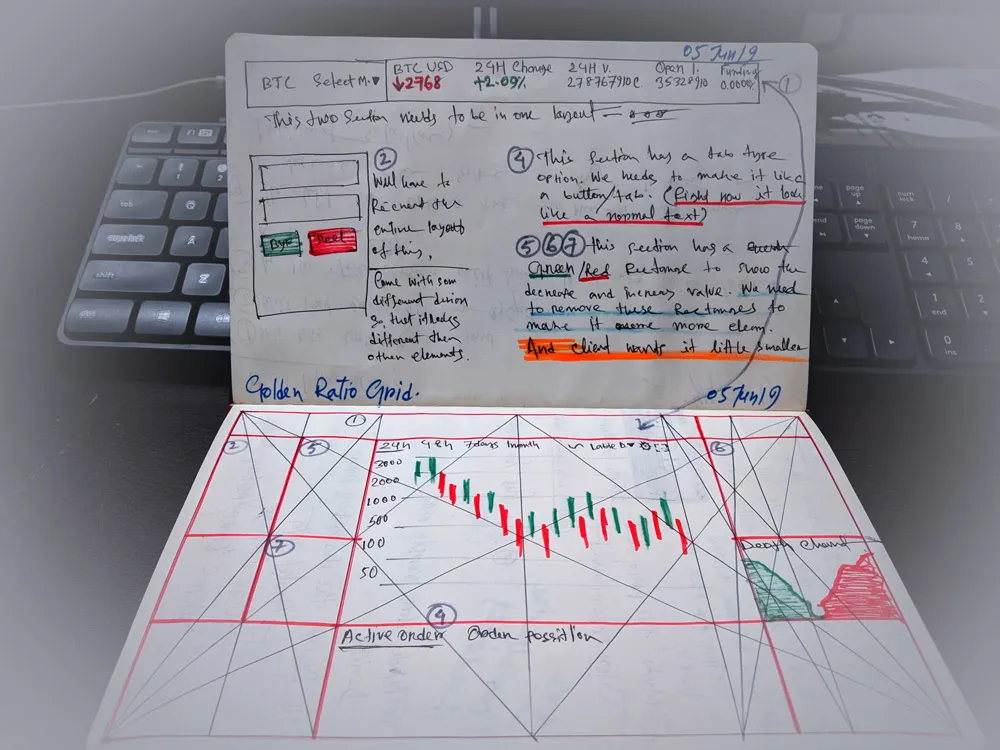 05 Jun19
BTC Select M.▼ BTC USD 24H Change 24H V. Open I. Funding
↓2768 +2.09% 278767910C 35328910 0.0000%
1
This two Section needs to be in one layout
2
Will have to
Reinvent the
entire layout
of this,
Come with som
different dision
So that it looks
different then
other elements.
Bye Seed
4 This Section has a tab type
option. We needs to make it like
a button/tab. (Right now it look
like a normal text)
5 6 7 this section has a
Green/Red Rectange to show the
decrease and increas value. We need
to remove these Rectanges to
make it more clean.
And client wants it little smaller
Golden Ratio Grid. 05 Jun19
1
2 5 24h 48h 7days 1month 6
3000
2000
1000
500
100
50
7
Depth Chart
4
Active Order Order possition